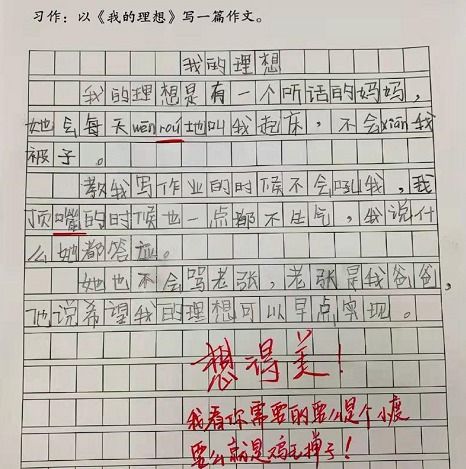 习作：以《我的理想》写一篇作文。
我的理想
我的理想是有一个听话的妈妈，
她会每天wēnróu地叫我起床，不会xiān我
被子。
教我写作业的时候不会吼我，我
顶嘴的时候也一点都不生气，我说什
么她都答应。
她也不会骂老张，老张是我爸爸，
他说希望我的理想可以早点实现。
想得美！
我看你需要的要么是个小度
要么就是鸡毛掸子！